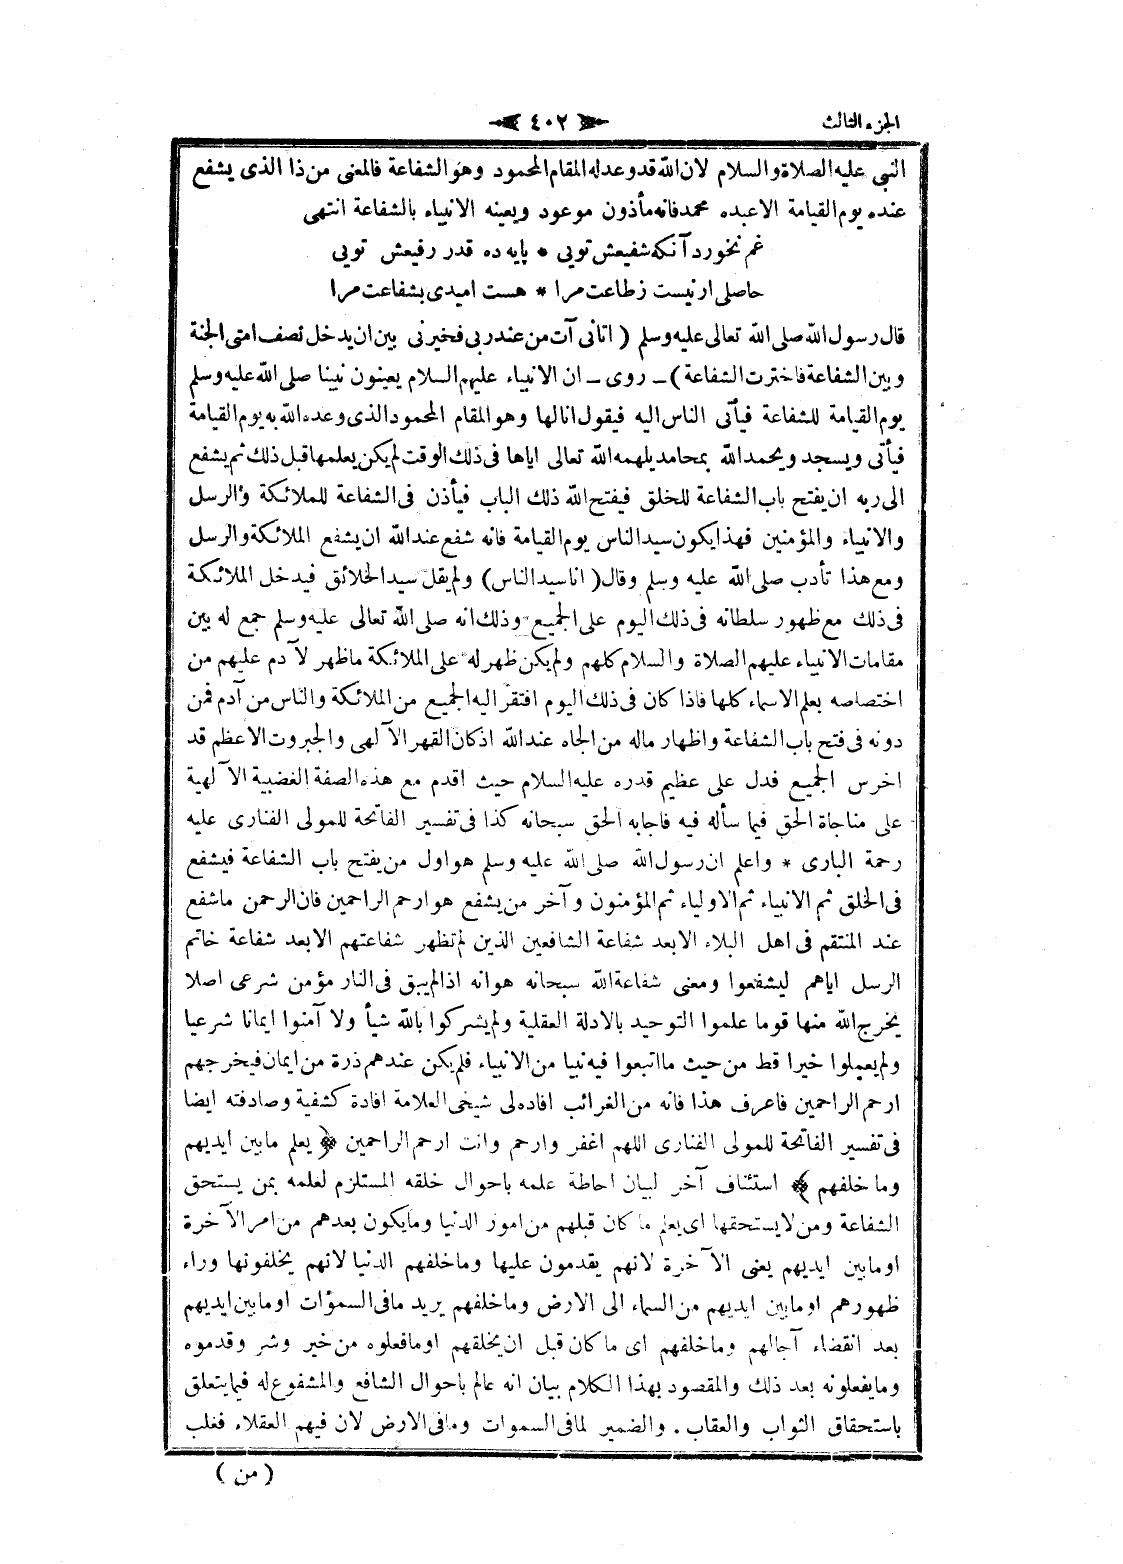 الجزء الثالث
٤٠٢
النبى عليه الصلاة والسلام لان الله قد وعد له المقام المحمود وهو الشفاعة فالمعنى من ذا الذى يشفع
عنده يوم القيامة الا عبده محمد فانه مأذون موعود ويعينه الانبياء بالشفاعة انتهى
غم نخورد آنكه شفيعش تويى * پايه ده قدر رفيعش تويى
حاصلى ار نيست ز طاعت مرا * هست اميدى بشفاعت مرا
قال رسول الله صلى الله تعالى عليه وسلم ( اتانى آت من عند ربى فخيرنى بين ان يدخل نصف امتى الجنة
وبين الشفاعة فاخترت الشفاعة ) ـ روى ـ ان الانبياء عليهم السلام يعينون نبينا صلى الله عليه وسلم
يوم القيامة للشفاعة فيأتى الناس اليه فيقول انا لها وهو المقام المحمود الذى وعده الله به يوم القيامة
فيأتى ويسجد ويحمد الله بمحامد يلهمه الله تعالى اياها فى ذلك الوقت لم يكن يعلمها قبل ذلك ثم يشفع
الى ربه ان يفتح باب الشفاعة للخلق فيفتح الله ذلك الباب فيأذن فى الشفاعة للملائكة والرسل
والانبياء والمؤمنين فهذا يكون سيد الناس يوم القيامة فانه شفع عند الله ان يشفع الملائكة والرسل
ومع هذا تأدب صلى الله عليه وسلم وقال ( انا سيد الناس ) ولم يقل سيد الخلائق فيدخل الملائكة
فى ذلك مع ظهور سلطانه فى ذلك اليوم على الجميع وذلك انه صلى الله تعالى عليه وسلم جمع له بين
مقامات الانبياء عليهم الصلاة والسلام كلهم ولم يكن ظهر له على الملائكة ماظهر لآدم عليهم من
اختصاصه بعلم الاسماء كلها فاذا كان فى ذلك اليوم افتقر اليه الجميع من الملائكة والناس من آدم فمن
دونه فى فتح باب الشفاعة واظهار ماله من الجاه عند الله اذ كان القهر الآلهى والجبروت الاعظم قد
اخرس الجميع فدل على عظيم قدره عليه السلام حيث اقدم مع هذه الصفة الغضبية الآلهية
على مناجاة الحق فيما سأله فيه فاجابه الحق سبحانه كذا فى تفسير الفاتحة للمولى الفنارى عليه
رحمة البارى * واعلم ان رسول الله صلى الله عليه وسلم هو اول من يفتح باب الشفاعة فيشفع
فى الخلق ثم الانبياء ثم الاولياء ثم المؤمنون وآخر من يشفع هو ارحم الراحمين فان الرحمن ماشفع
عند المنتقم فى اهل البلاء الا بعد شفاعة الشافعين الذين لم تظهر شفاعتهم الا بعد شفاعة خاتم
الرسل اياهم ليشفعوا ومعنى شفاعة الله سبحانه هو انه اذا لم يبق فى النار مؤمن شرعى اصلا
يخرج الله منها قوما علموا التوحيد بالادلة العقلية ولم يشركوا بالله شيأ ولا آمنوا ايمانا شرعيا
ولم يعملوا خيرا قط من حيث ما اتبعوا فيه نبيا من الانبياء فلم يكن عندهم ذرة من ايمان فيخرجهم
ارحم الراحمين فاعرف هذا فانه من الغرائب افاده لى شيخى العلامة افادة كشفية وصادفته ايضا
فى تفسير الفاتحة للمولى الفنارى اللهم اغفر وارحم وانت ارحم الراحمين ﴿ يعلم مابين ايديهم
وما خلفهم ﴾ استئناف آخر لبيان احاطة علمه باحوال خلقه المستلزم لعلمه بمن يستحق
الشفاعة ومن لا يستحقها اى يعلم ما كان قبلهم من امور الدنيا ومايكون بعدهم من امر الآخرة
اومابين ايديهم يعنى الآخرة لانهم يقدمون عليها وماخلفهم الدنيا لانهم يخلفونها وراء
ظهورهم اومابين ايديهم من السماء الى الارض وماخلفهم يريد مافى السموات اومابين ايديهم
بعد انقضاء آجالهم وماخلفهم اى ما كان قبل ان يخلقهم اومافعلوه من خير وشر وقدموه
ومايفعلونه بعد ذلك والمقصود بهذا الكلام بيان انه عالم باحوال الشافع والمشفوع له فيما يتعلق
باستحقاق الثواب والعقاب . والضمير لمافى السموات ومافى الارض لان فيهم العقلاء فغلب
( من )